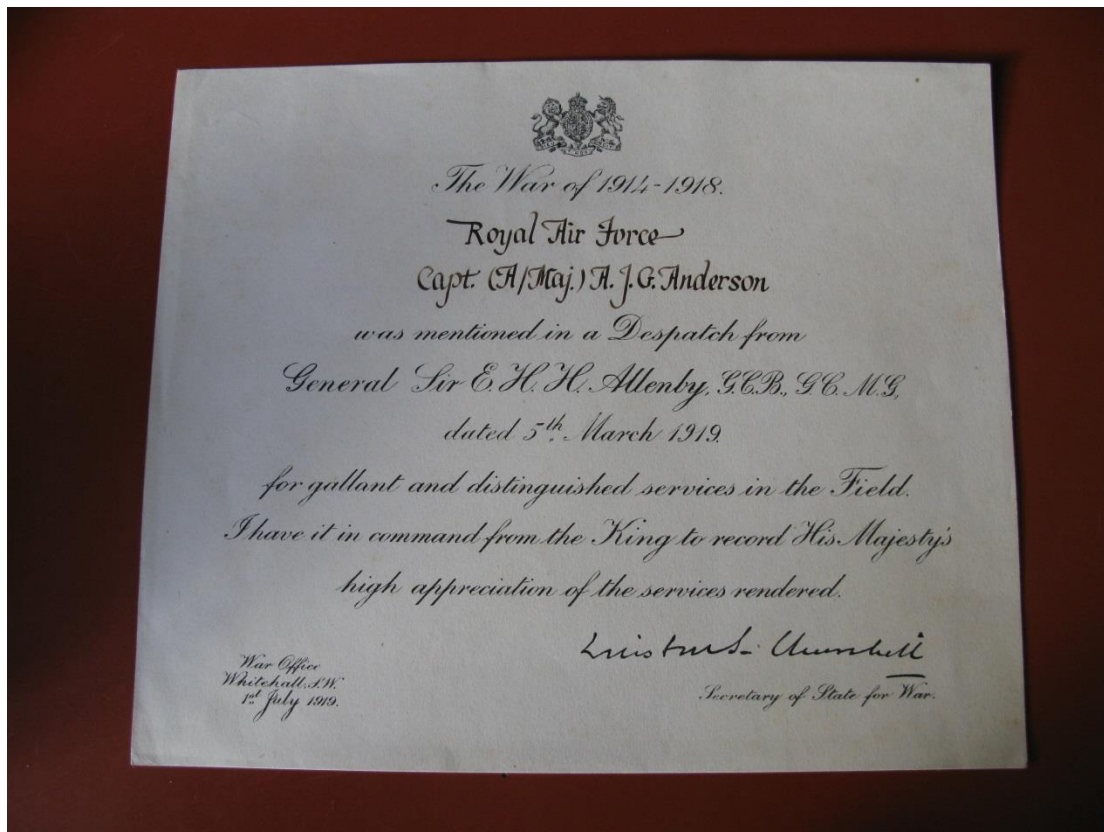 The War of 1914-1918.
Royal Air Force
Capt. (A/Maj.) A. J. G. Anderson
was mentioned in a Despatch from
General Sir E. H. H. Allenby, G.C.B., G.C.M.G,
dated 5th March 1919.
for gallant and distinguished services in the Field.
I have it in command from the King to record His Majesty's
high appreciation of the services rendered.
Winston S. Churchill
War Office
Whitehall, S.W.
1st July 1919.
Secretary of State for War.